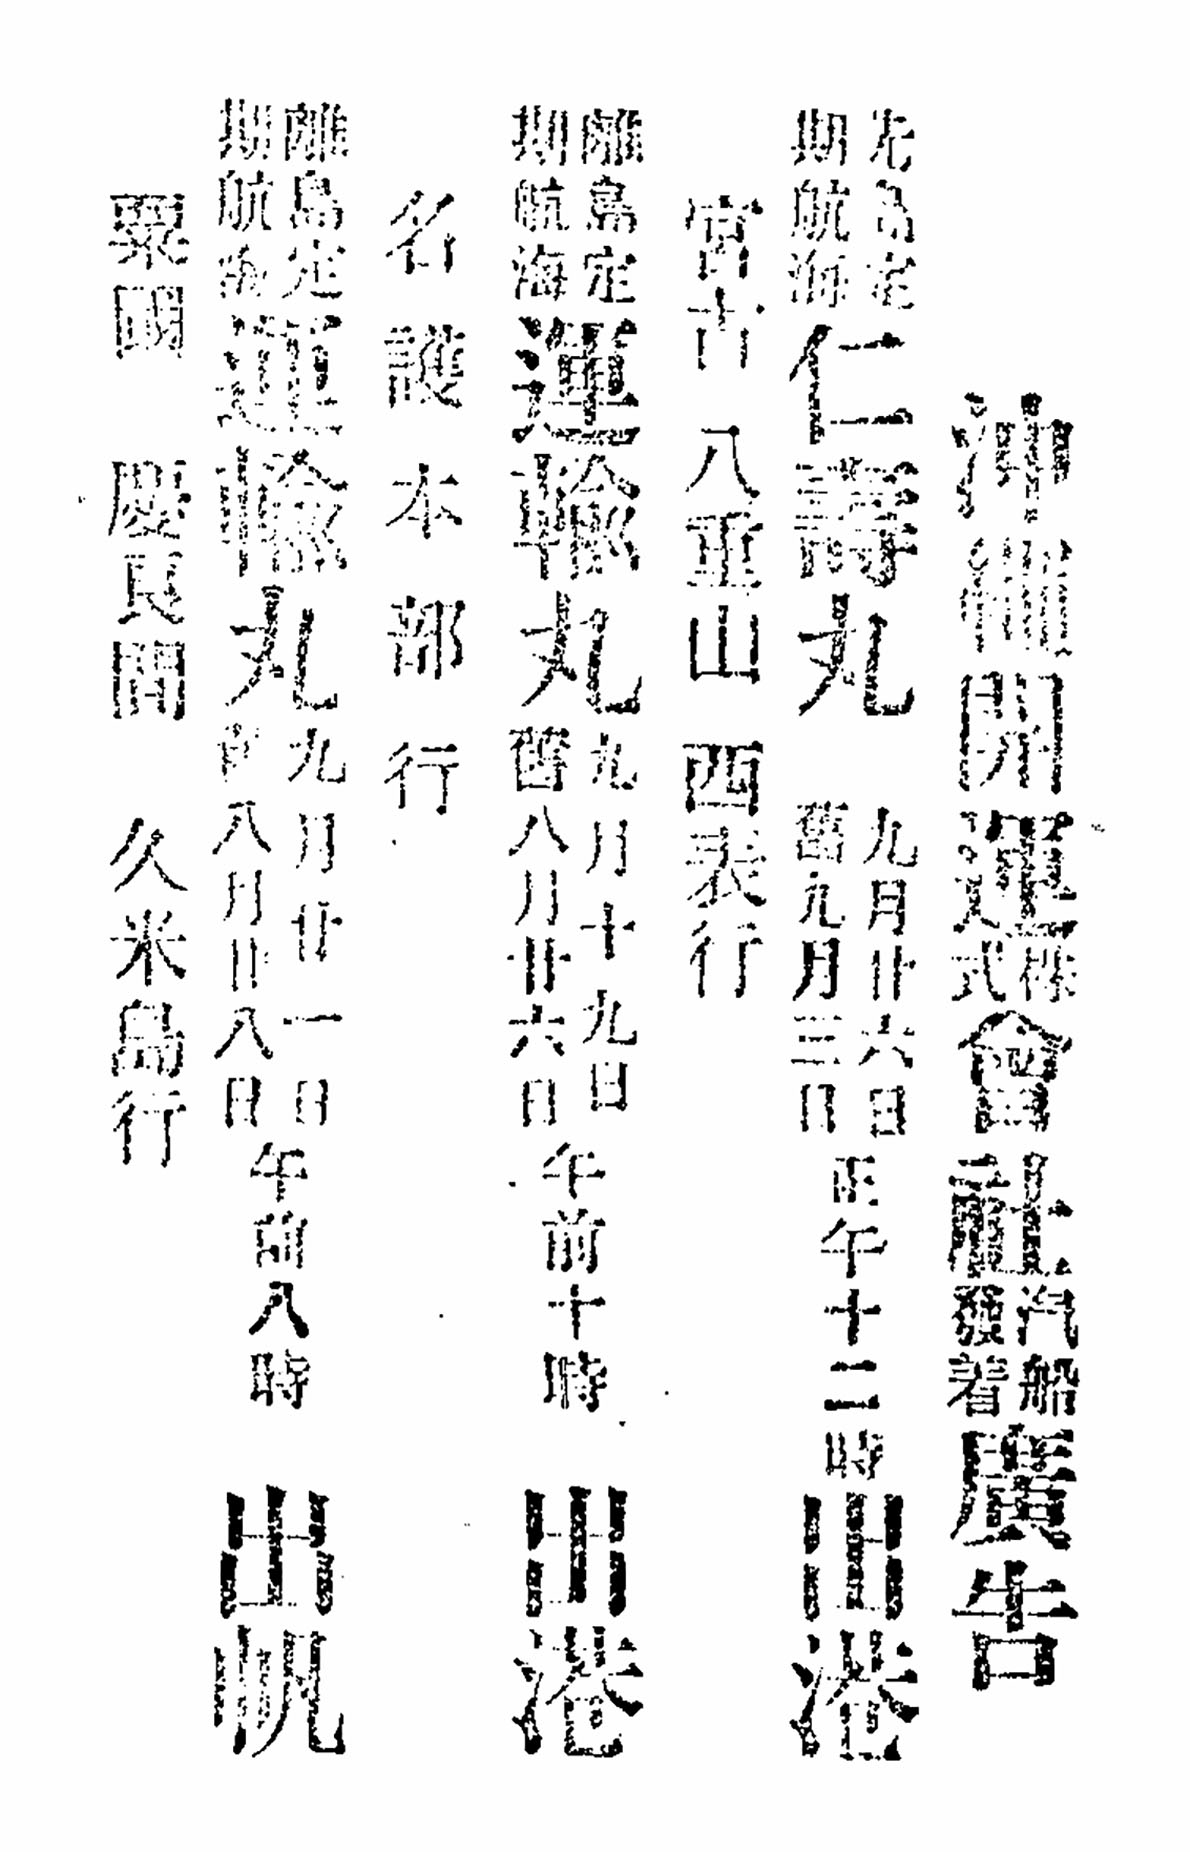 沖繩開運株式會社汽船發着廣告
先島定期航海仁壽丸 九月廿六日舊九月三日正午十二時出港
宮古 八重山 西表行
離島定期航海運輸丸九月十九日舊八月廿六日午前十時出港
名護本部行
離島定期航海運輸丸九月廿一日舊八月廿八日午前八時出帆
粟國 慶良間 久米島行